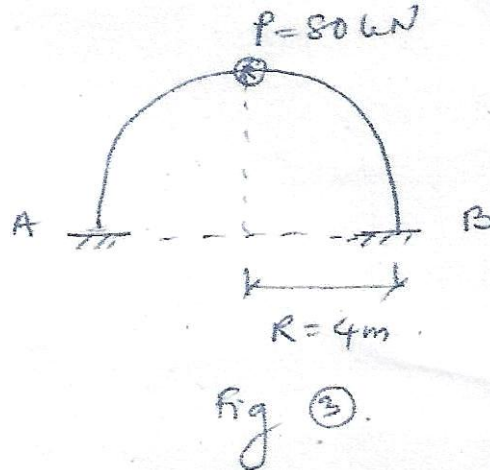 P=80 kN
A B
R=4m.
Fig ③.